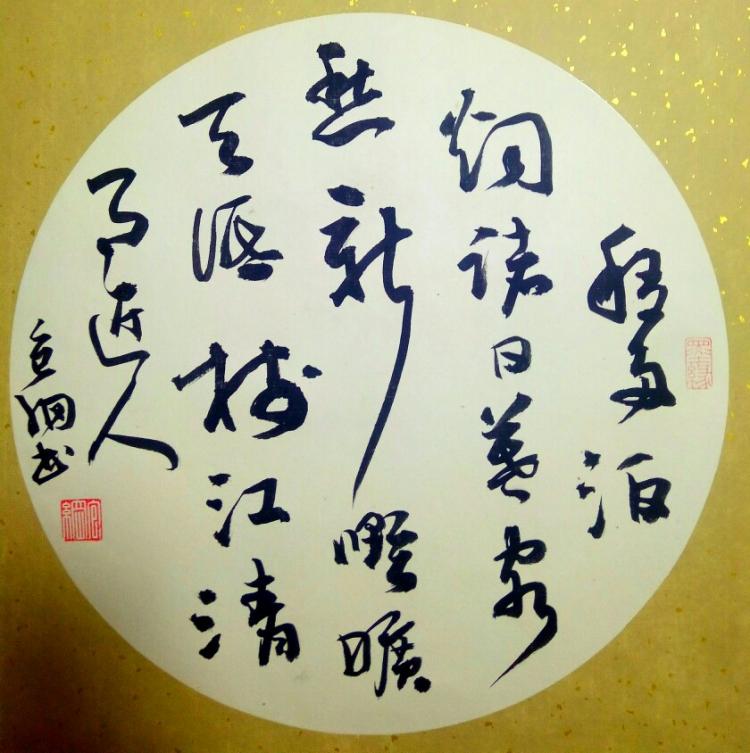 移舟泊
烟渚日暮客
愁新野曠
天低树江清
月近人
书